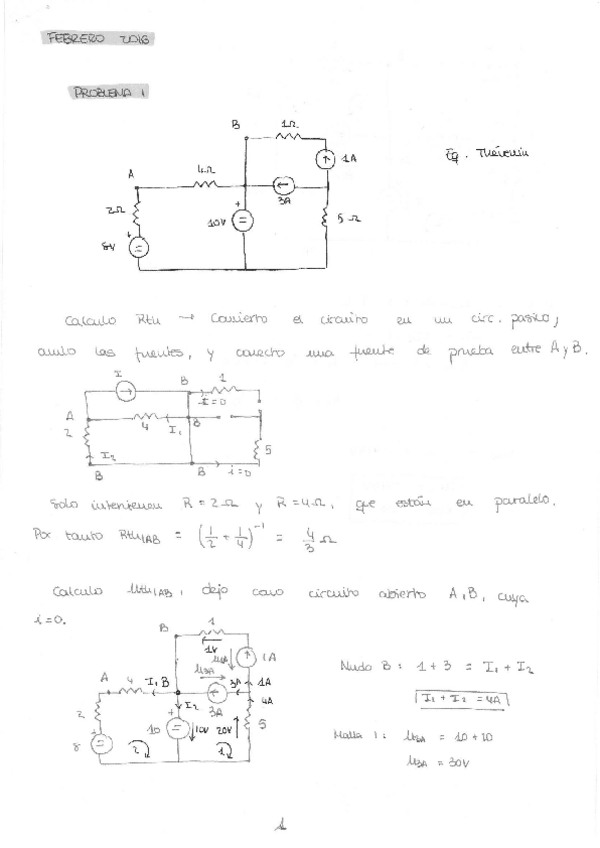 FEBRERO 2016
PROBLEMA 1
B 1Ω
1A
Eq. Thévenin
4Ω
A
3A
2Ω
+
10V
5Ω
+
8V
Calculo Rth → Convierto el circuito en un circ. pasivo,
anulo las fuentes, y conecto una fuente de prueba entre A y B.
I B 1
i=0
A 4 I₁ B
2
I₂ 5
B B i=0
Solo intervienen R=2Ω y R=4Ω, que están en paralelo.
Por tanto Rth|AB = (1/2 + 1/4)⁻¹ = 4/3 Ω
Calculo Uth|AB, dejo como circuito abierto A,B, cuya
i=0.
B 1
1V
1A
U3A
A 4 I₁ B 3A 1A
I₂ 3A 4A
2 + 10 10V 20V 5
+
8 2 1
Nudo B: 1+3 = I₁+I₂
I₁+I₂ = 4A
Malla 1: U3A = 10+20
U3A = 30V
1